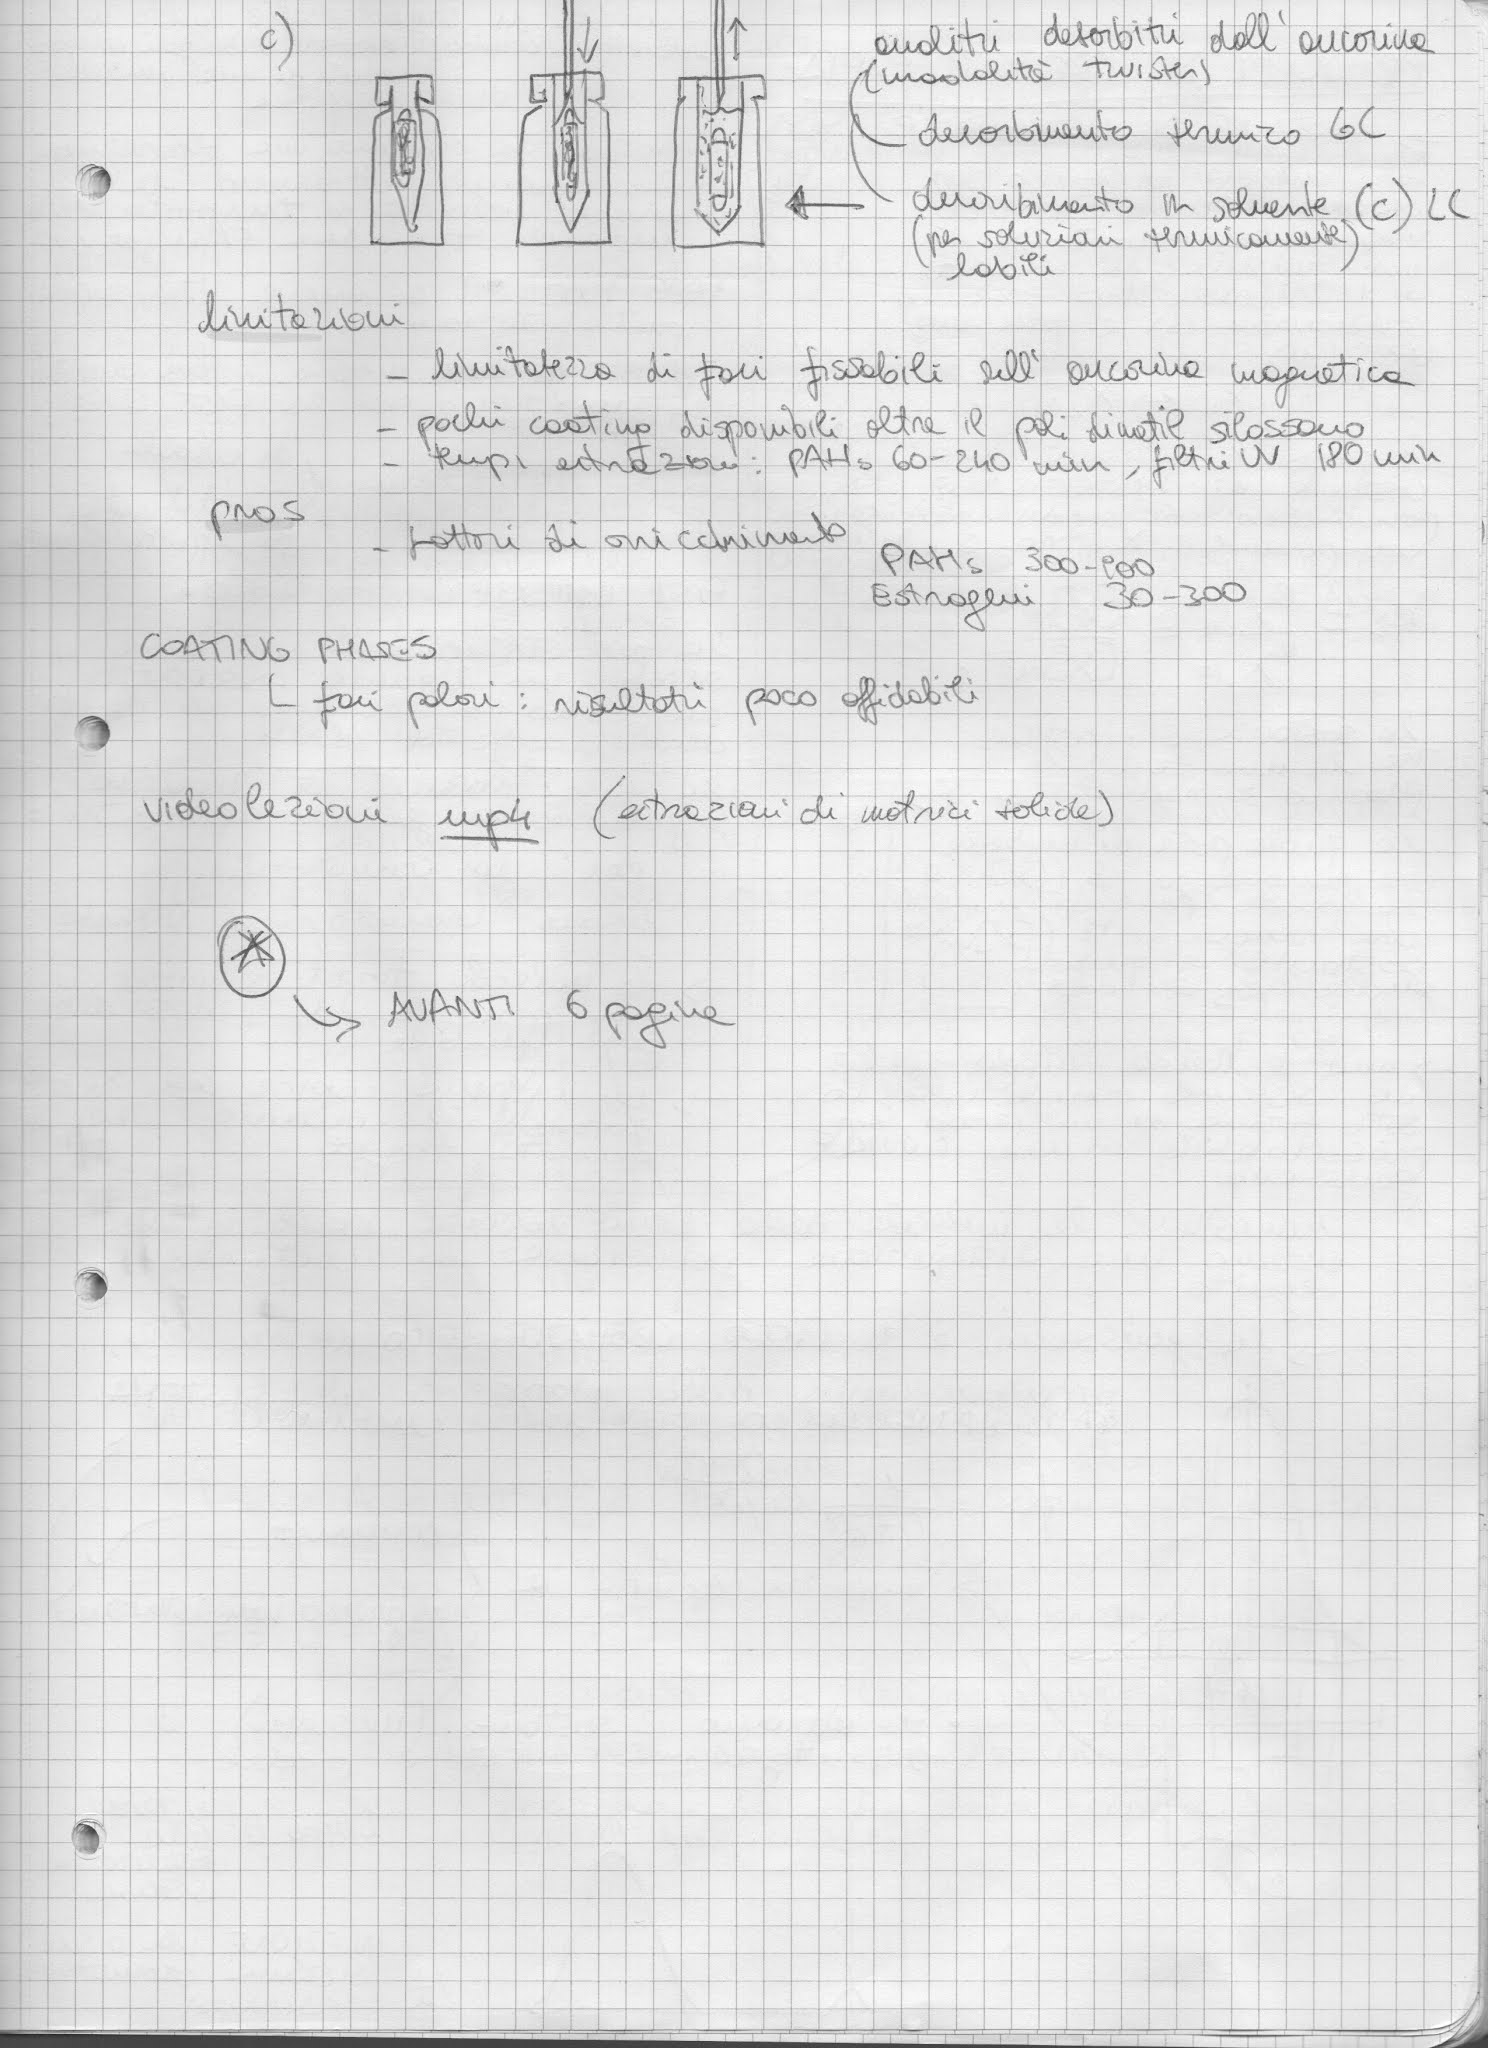 c)
analiti desorbiti dall'ancorina
(modalità twister)
desorbimento termico GC
desorbimento in solvente (c) LC
(per soluzioni termicamente)
labili
limitazioni
- limitatezza di fasi fissabili sull'ancorina magnetica
- pochi coating disponibili oltre il poli dimetil silossano
- tempi estrazione: PAHs 60-240 min, filtri UV 180 min
pros
- fattori di arricchimento
PAHs 300-900
Estrogeni 30-300
COATING PHASES
fasi polari: risultati poco affidabili
videolezioni mp4 (estrazioni di matrici solide)
AVANTI 6 pagine